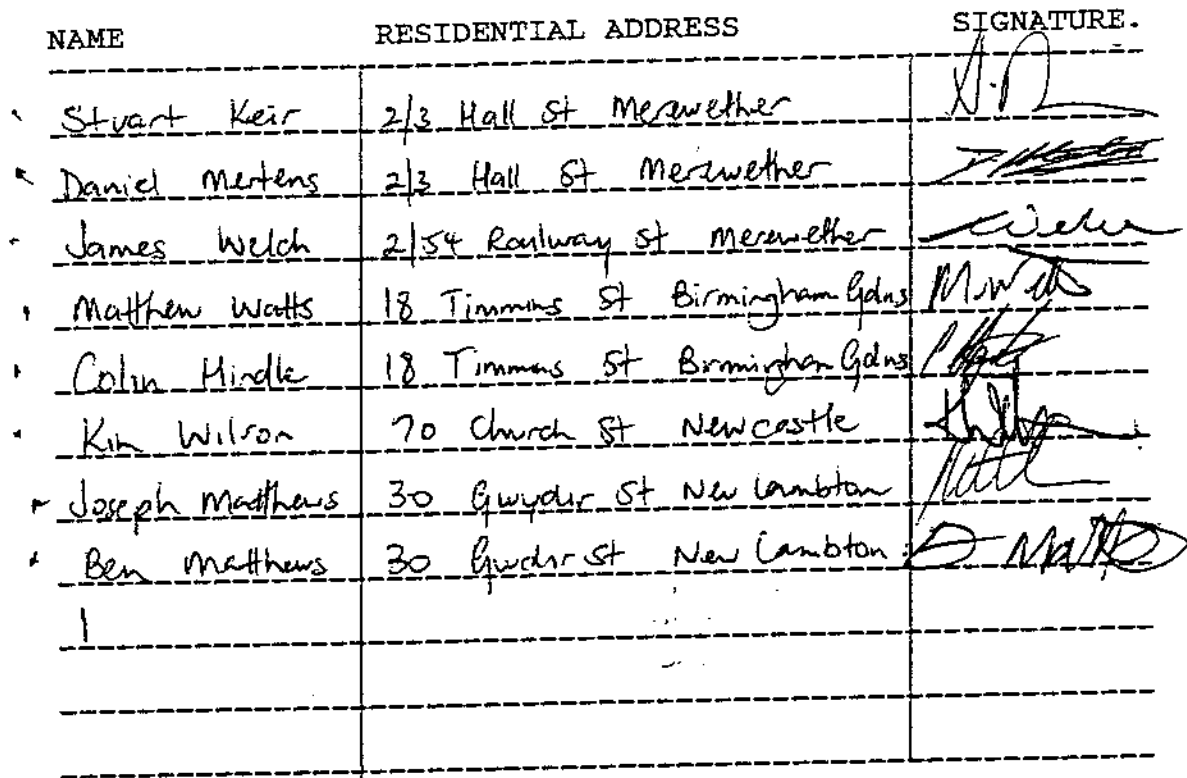 NAME RESIDENTIAL ADDRESS SIGNATURE.
Stuart Keir 2/3 Hall St Merewether
Daniel Mertens 2/3 Hall St Merewether
James Welch 2/54 Railway St Merewether
Matthew Watts 18 Timmins St Birmingham Gdns
Colin Hindle 18 Timmins St Birmingham Gdns
Kim Wilson 70 Church St Newcastle
Joseph Matthews 30 Gwydir St New Lambton
Ben Matthews 30 Gwdir St New Lambton